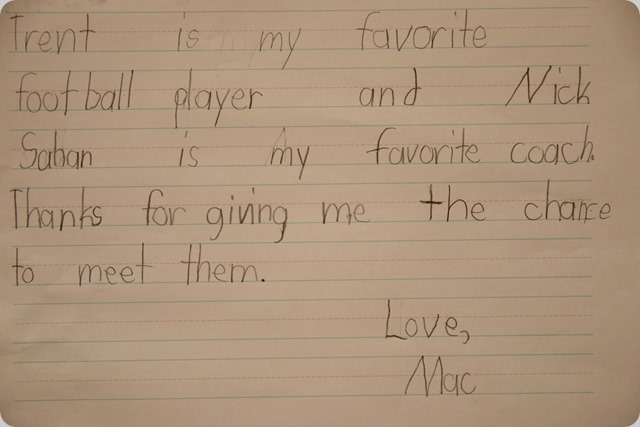 Trent is my favorite
football player and Nick
Saban is my favorite coach.
Thanks for giving me the chance
to meet them.
Love,
Mac